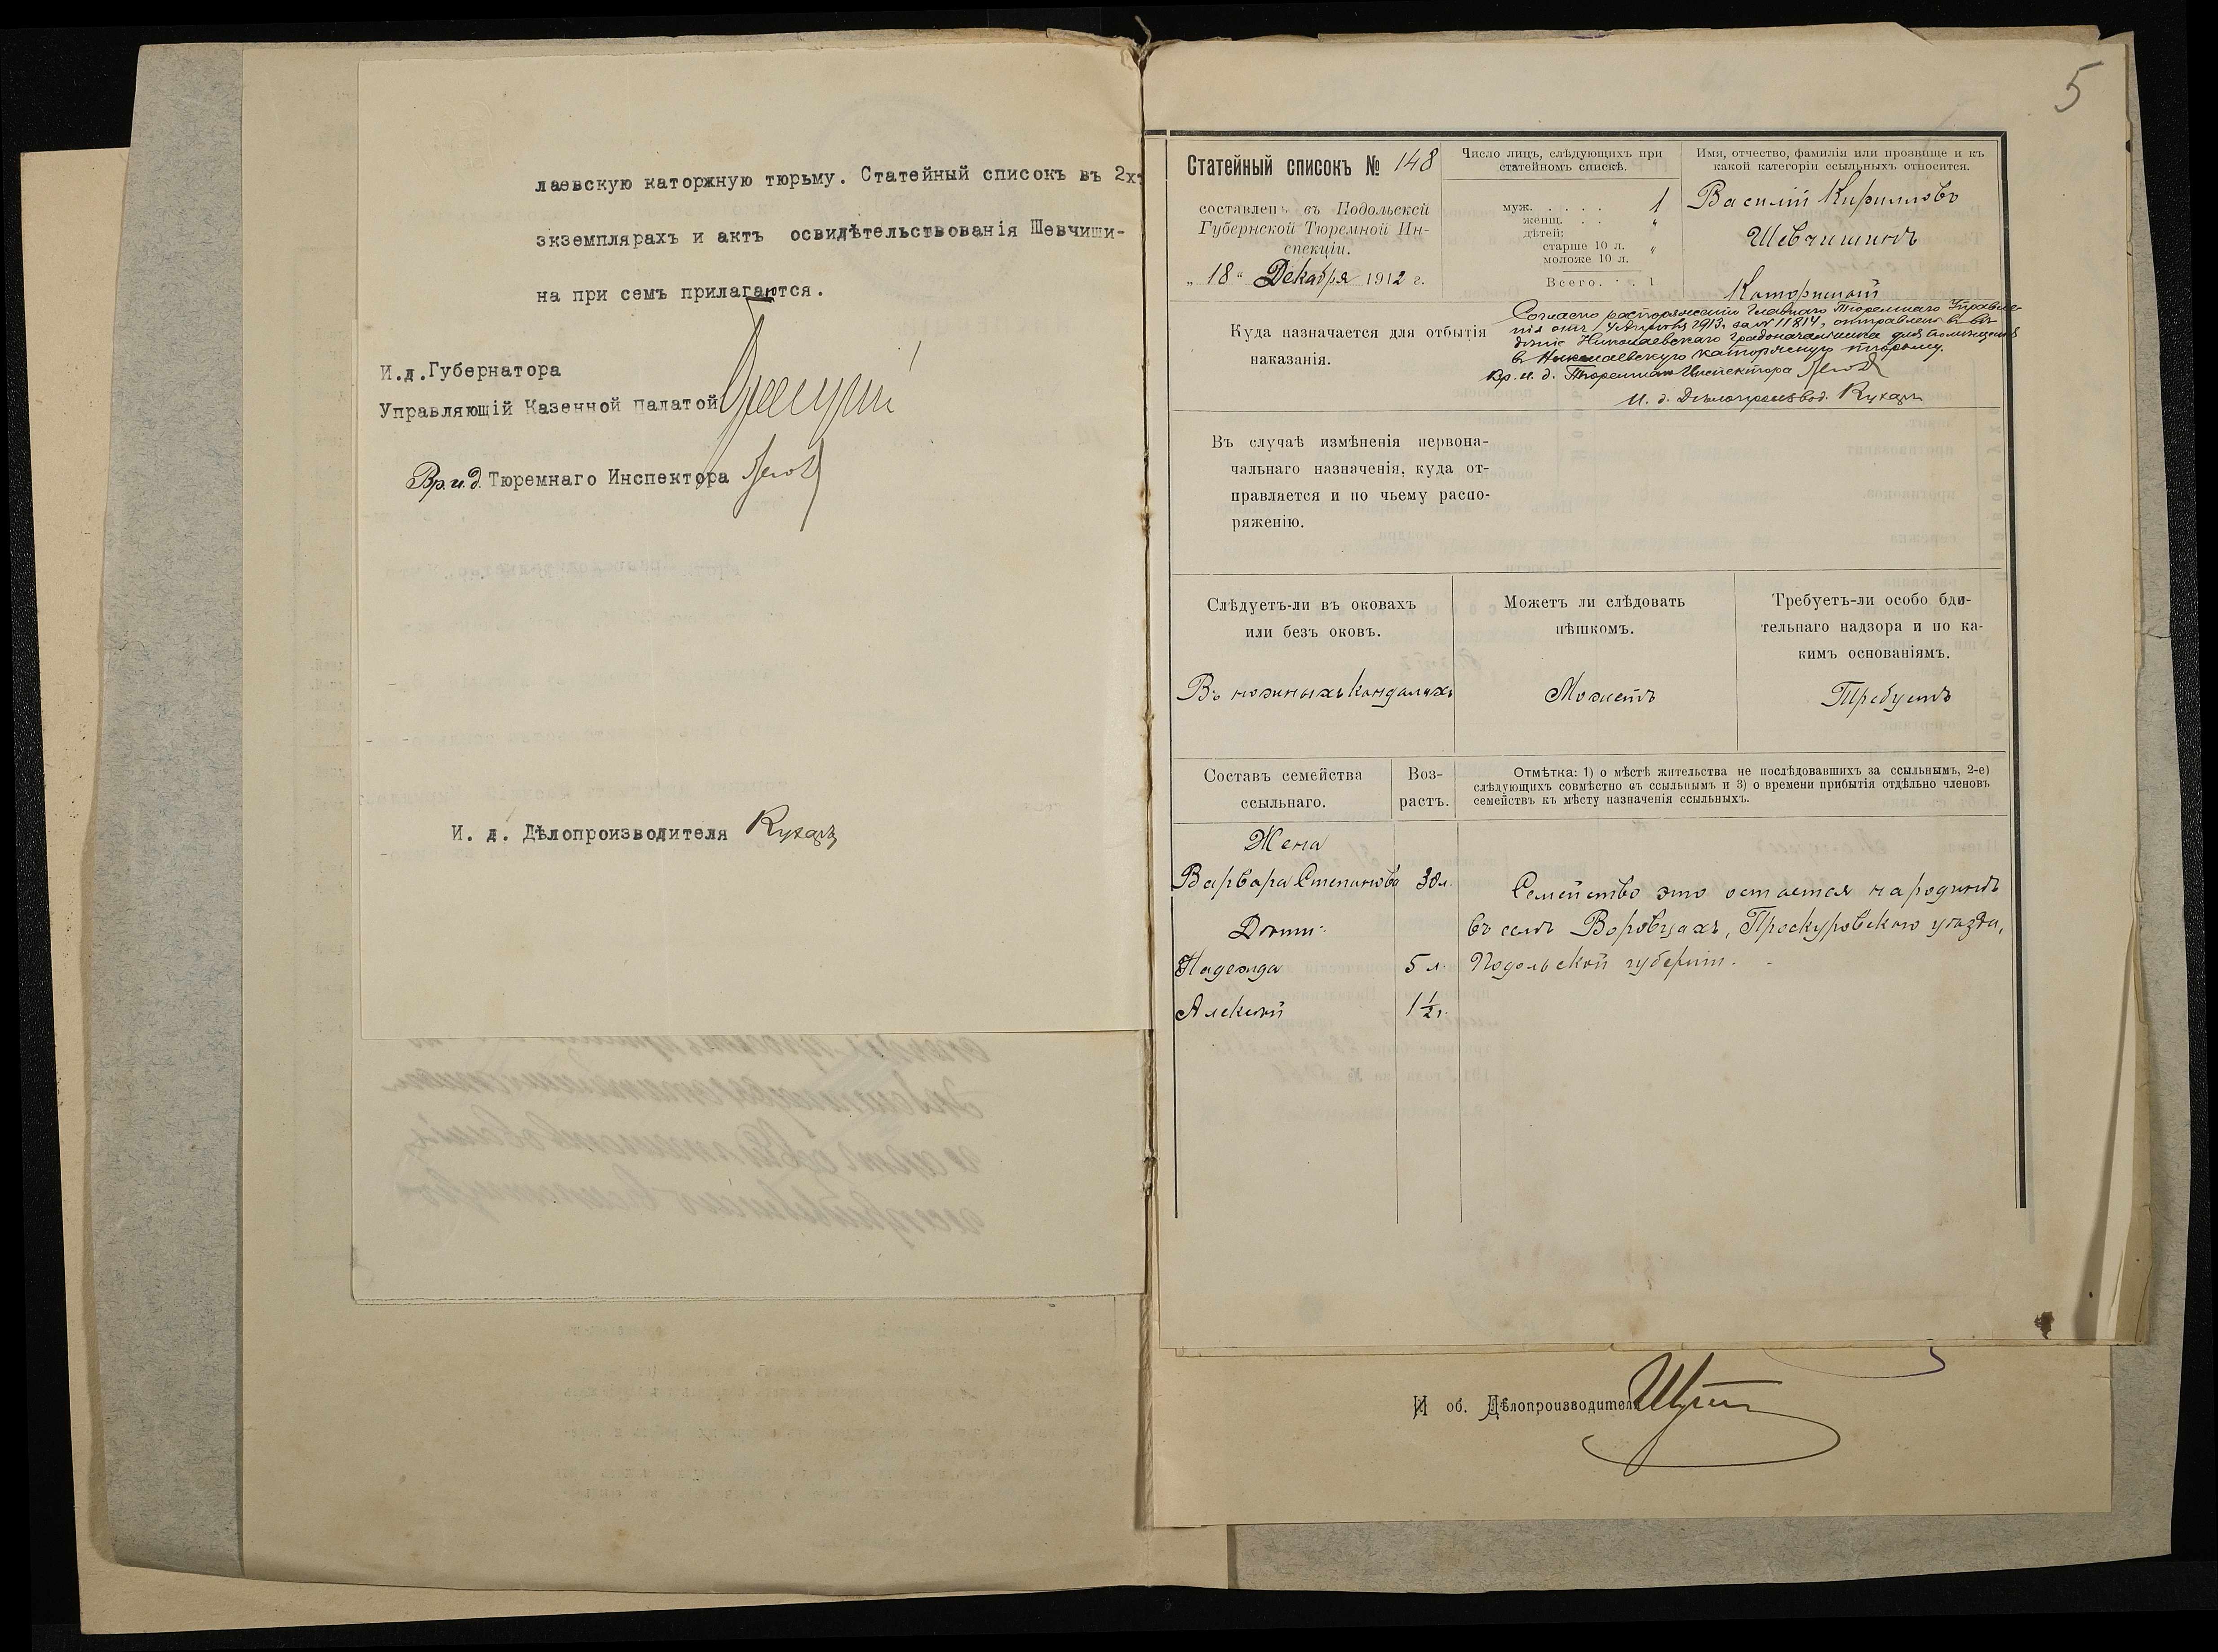 лаевскую каторжную тюрьму. Статейный списокъ въ 2хъ
экземплярахъ и актъ освидѣтельствованія Шевчиши-
на при семъ прилагаются.
И.д.Губернатора
Управляющій Казенной Палатой
Вр.и.д. Тюремнаго Инспектора
И. д. Дѣлопроизводителя
5
Статейный списокъ № 148
составленъ въ Подольской
Губернской Тюремной Ин-
спекціи.
„ 18 " Декабря 1912 г.
Число лицъ, слѣдующихъ при
статейномъ спискѣ.
муж. . . . . 1
женщ. . . "
дѣтей:
старше 10 л. "
моложе 10 л.
Всего. . . 1
Имя, отчество, фамилія или прозвище и къ
какой категоріи ссыльныхъ относится.
Василій Кирилловъ
Шевчишинъ
Каторжный
Куда назначается для отбытія
наказанія.
Согласно распоряженія Главнаго Тюремнаго Управле-
нія отъ 4 Апрѣля 1913 г. за № 11814, отправленъ въ вѣ-
дѣніе Николаевскаго Градоначальника для помѣщенія
въ Николаевскую каторжную тюрьму.
Вр. и. д. Тюремнаго Инспектора
И. д. Дѣлопроизвод.
Въ случаѣ измѣненія первона-
чальнаго назначенія, куда от-
правляется и по чьему распо-
ряженію.
Слѣдуетъ-ли въ оковахъ
или безъ оковъ.
Въ ножныхъ кандалахъ
Можетъ ли слѣдовать
пѣшкомъ.
Можетъ
Требуетъ-ли особо бди-
тельнаго надзора и по ка-
кимъ основаніямъ.
Требуетъ
Составъ семейства
ссыльнаго.
Воз-
растъ.
Отмѣтка: 1) о мѣстѣ жительства не послѣдовавшихъ за ссыльнымъ, 2-е)
слѣдующихъ совмѣстно съ ссыльнымъ и 3) о времени прибытія отдѣльно членовъ
семействъ къ мѣсту назначенія ссыльныхъ.
Жена
Варвара Степанова 30 л.
Дѣти:
Надежда 5 л.
Алексѣй 1½ г.
Семейство это остается на родинѣ
въ селѣ Воровцахъ, Проскуровскаго уѣзда,
Подольской губерніи.
И об. Дѣлопроизводителя